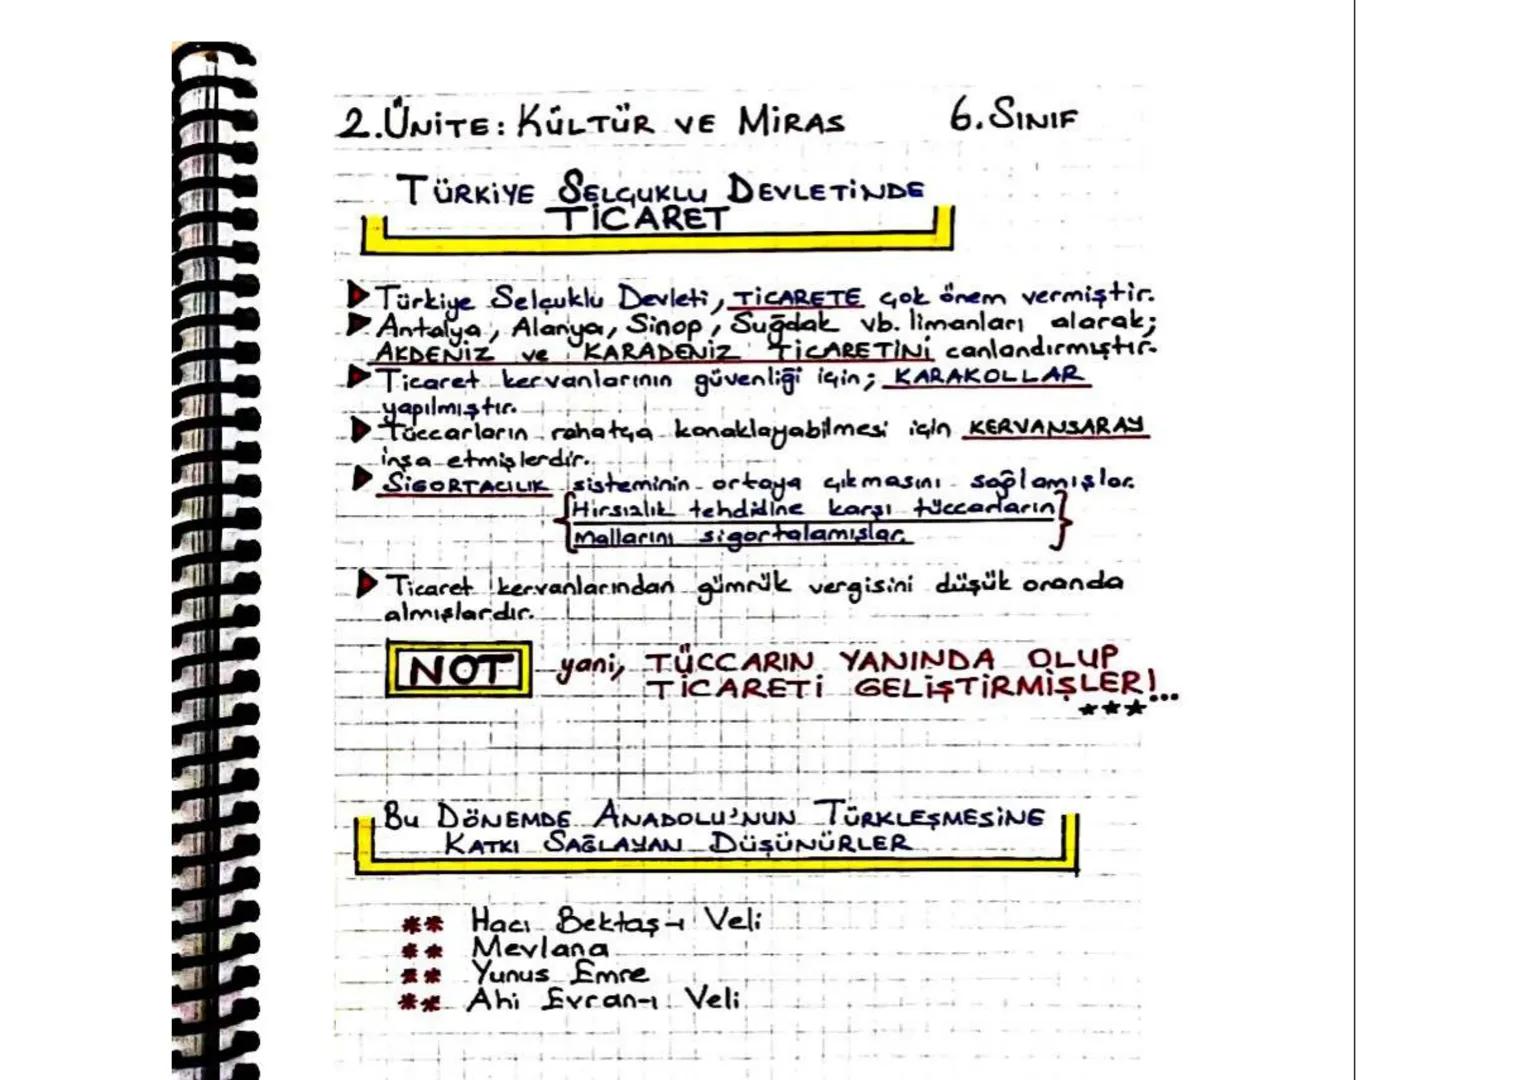 2.ÜNİTE: KÜLTÜR VE MİRAS 6.SINIF
TÜRKİYE SELÇUKLU DEVLETİNDE
TİCARET
Türkiye Selçuklu Devleti, TİCARETE çok önem vermiştir.
Antalya, Alanya, Sinop, Suğdak vb. limanları alarak;
AKDENİZ ve KARADENİZ TİCARETİNİ canlandırmıştır.
Ticaret kervanlarının güvenliği için; KARAKOLLAR
yapılmıştır.
Tüccarların rahatça konaklayabilmesi için KERVANSARAY
inşa etmişlerdir.
SİGORTACILIK sisteminin ortaya çıkmasını sağlamışlar.
{Hırsızlık tehdidine karşı tüccarların}
Mallarını sigortalamışlar.
Ticaret kervanlarından gümrük vergisini düşük oranda
almışlardır.
NOT yani, TÜCCARIN YANINDA OLUP
TİCARETİ GELİŞTİRMİŞLER!...
★★★
BU DÖNEMDE ANADOLU'NUN TÜRKLEŞMESİNE
KATKI SAĞLAYAN DÜŞÜNÜRLER
** Hacı Bektaş-ı Veli
** Mevlana
** Yunus Emre
** Ahi Evran-ı Veli